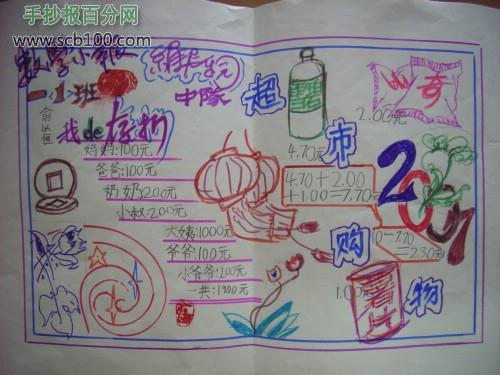 手抄报百分网
www.scb100.com
数学小报
一.1班
中队
我de存折
妈妈:100元
爸爸:100元
奶奶200元
小叔:200元
大姨:1000元
爷爷:100元
小爷爷:200元
一共:1900元
超市购物
4.70元
2.00元
4.70+2.00
+1.00=7.70元
10-7.70
=2.30元
1.00元